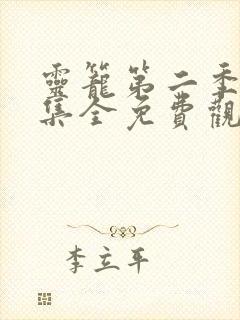 靈籠第二季
集全免費觀
李立平